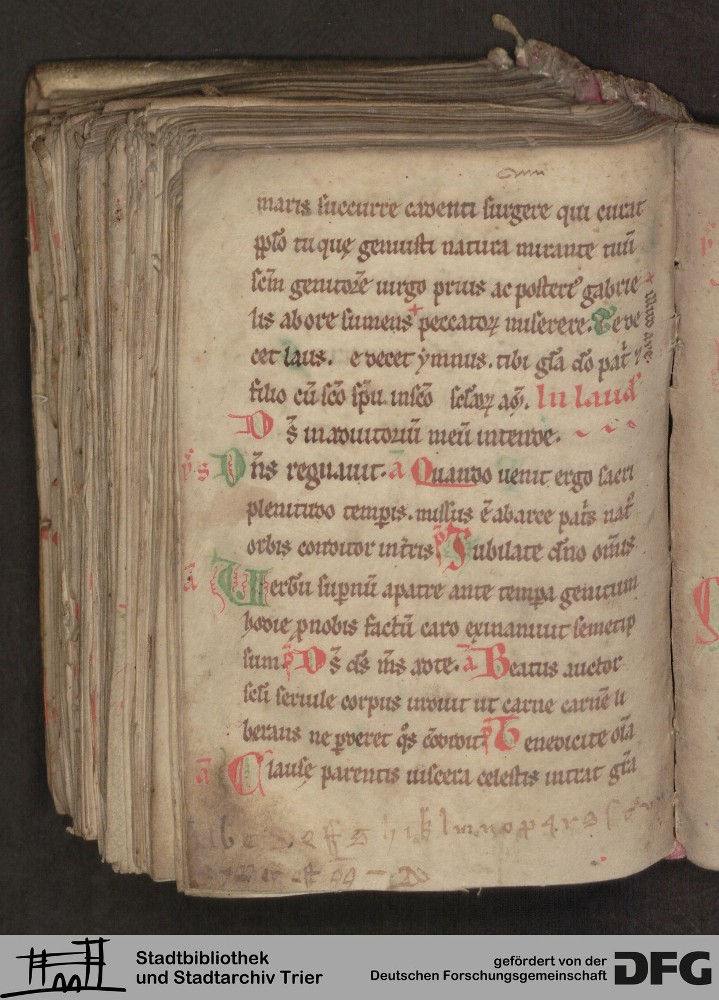 maris succurre cadenti surgere qui curat
pplo tu quę genuisti natura mirante tuū
scm genitorē uirgo prius ac posteri⁹ gabrie
lis ab ore sumens peccatoꝝ miserere. Te de
cet laus. e decet ymnus. tibi gla do pat̄ ⁊
filio cū sco spu. in sco sclaꝝ am̄. In laud̄
Ds in adiutoriū meū intende.
ps Dn̄s regnauit. a Quando uenit ergo sacri
plenitudo temporis. missus ē ab arce pat̄s nat⁹
orbis conditor in tris ps Jubilate dno om̄is
a Uerbū supnū a patre ante tempa genitum
hodie p nobis factū caro exinaniuit semetip
sum ps Ds ds m̄s ad te. a Beatus auctor
scli seruile corpus induit ut carne carnē li
berans ne pderet q̄s cōdidit ps Benedicite oīa
a Clause parentis uiscera celestis intrat gr̄a
Stadtbibliothek
und Stadtarchiv Trier
gefördert von der
Deutschen Forschungsgemeinschaft
DFG